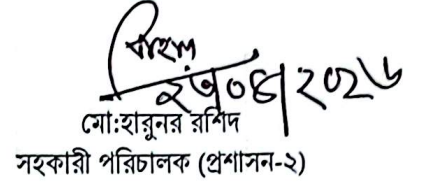 ২৩/০৪/২০২৬
মো:হারুনর রশিদ
সহকারী পরিচালক (প্রশাসন-২)